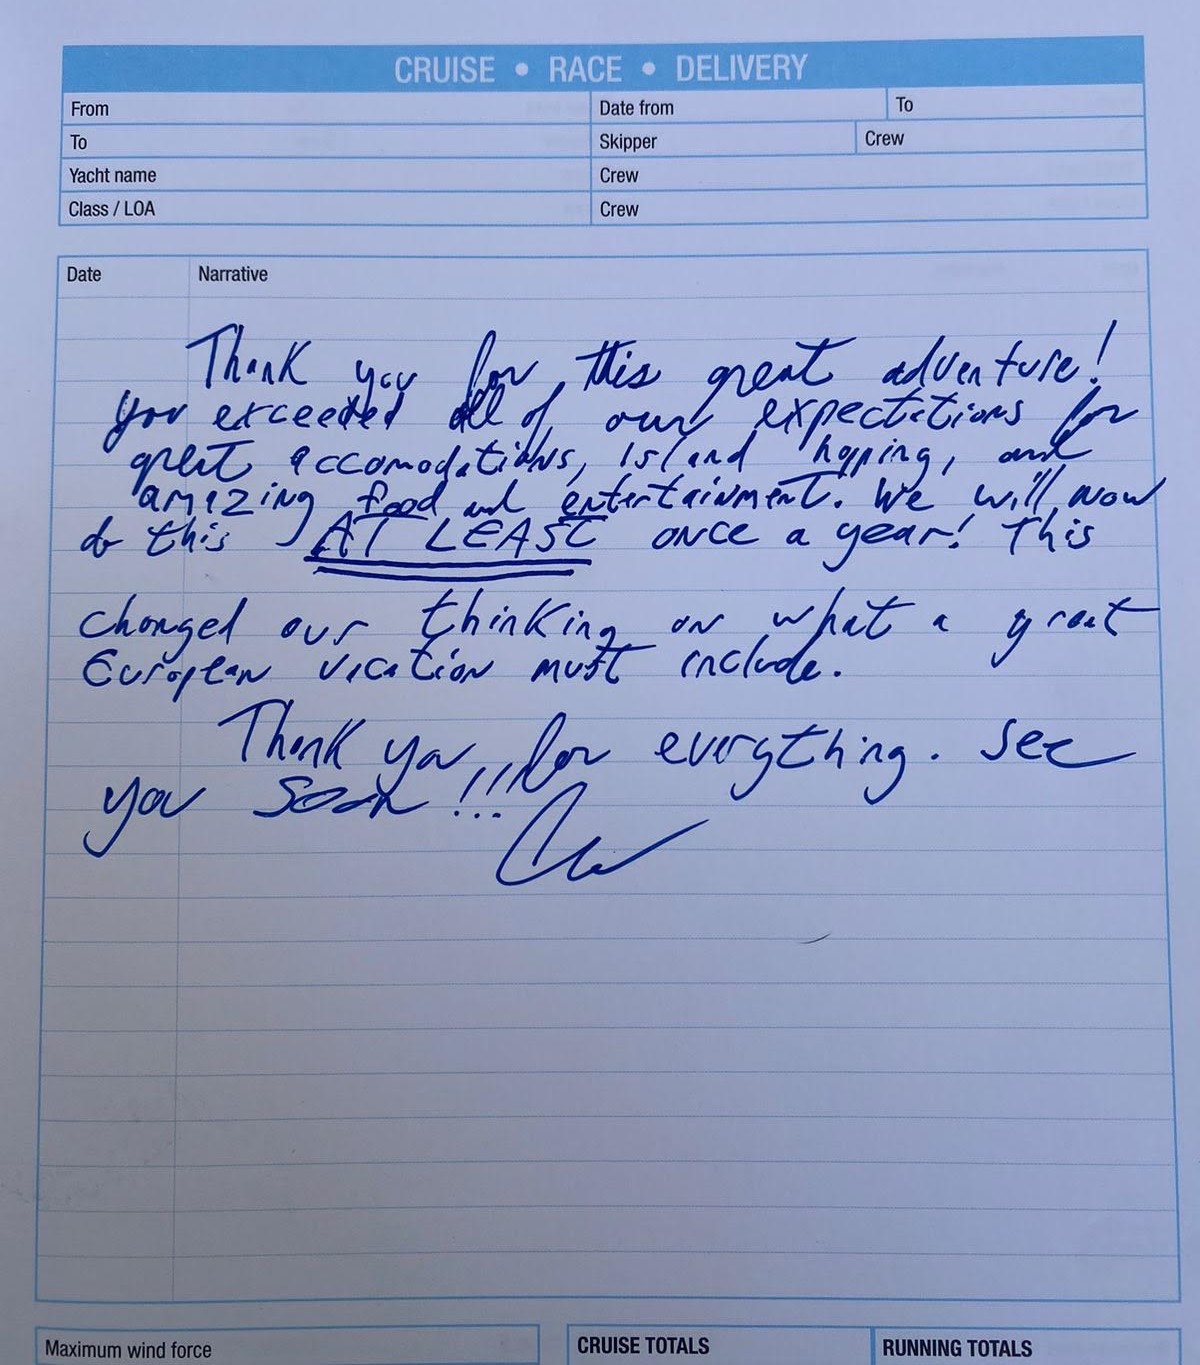 CRUISE • RACE • DELIVERY
From Date from To
To Skipper Crew
Yacht name Crew
Class / LOA Crew
Date Narrative
Thank you for this great adventure!
You exceeded all of our expectations for
great accomodations, island hopping, and
amazing food and entertainment. We will now
do this AT LEAST once a year! This
changed our thinking on what a great
European vacation must include.
Thank you for everything. See
you soon!!!
Maximum wind force CRUISE TOTALS RUNNING TOTALS